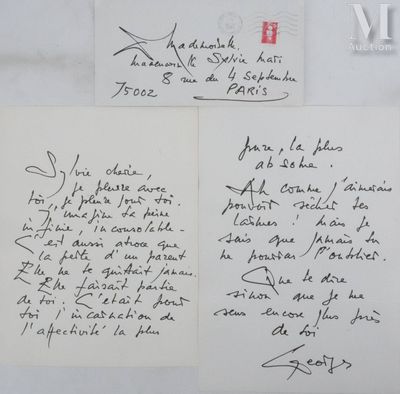 M
Auction
Mademoiselle
Mademoiselle Sylvie Mari
8 rue du 4 Septembre
75002 PARIS
Sylvie chérie,
je pleure avec
toi, je pleure pour toi.
J'imagine ta peine
infinie, inconsolable -
C'est aussi atroce que
la perte d'un parent
Elle ne te quittait jamais.
Elle faisait partie
de toi. C'était pour
toi l'incarnation de
l'affectivité la plus
pure, la plus
absolue.
Ah comme j'aimerais
pouvoir sécher tes
larmes ! mais je
sais que jamais tu
ne pourras l'oublier.
Que te dire
sinon que je me
sens encore plus près
de toi
Georges